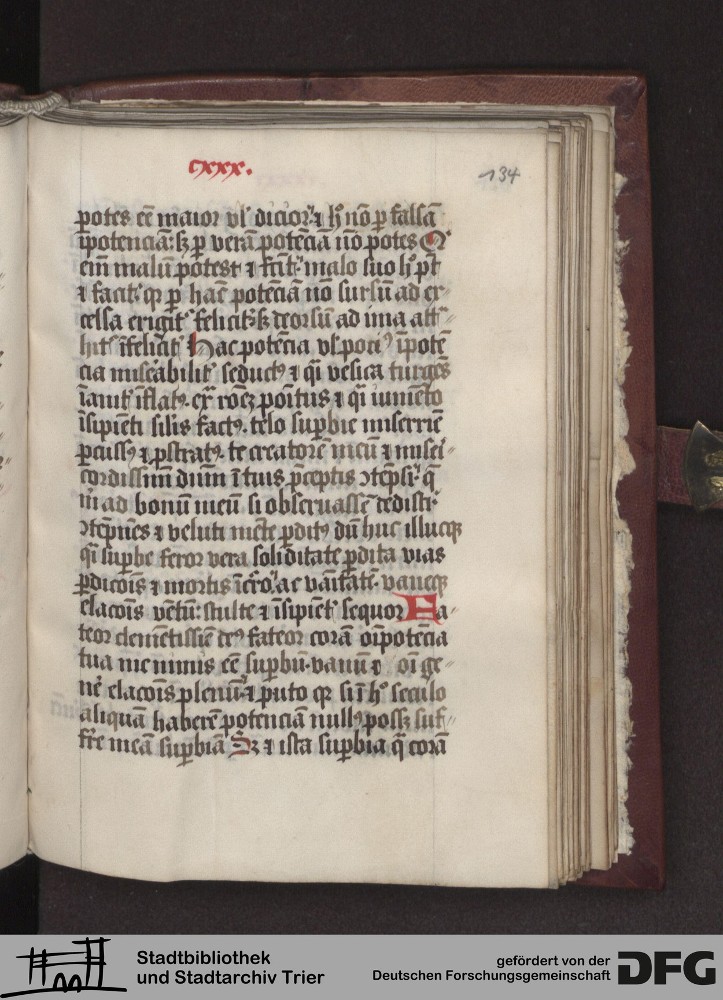 cxxx.
134
potes eē maior vl' dicior: ⁊ h' nō p falsā
īpotenciā: sꝫ p verā potēciā nō potes
eī malū potest ⁊ malo suo
⁊ facit qꝛ p hāc potēciā nō sursū ad ex
celsa erigit felicit' sꝫ deorsū ad ima att
hit īfelicit' Hac potēcia vl' poci⁹ īpotē
cia seduct⁹ ⁊ q̄i vesica turgēs
īflat⁹ ⁊ q̄i iumēto
īsipiēti silis fact⁹. telo supbie
pcuss⁹ ⁊ pstrat⁹. te creatorē meū ⁊ misei
cordissim dūm ī tuis p̄ceptis ↄtēpsi: q̄
m ad bonū meū si obseruassē dedisti
ↄtēpnēs ⁊ veluti mēte pdit⁹ dū huc illucqꝫ
q̄i supbe feror vera soliditate pdita vias
pdicōis ⁊ mortis ac vāitatē vaneqꝫ
elacōis vētū: stulte ⁊ īsipiēt' sequor Fa
teor clemētissie de⁹ fateor corā oīpotēcia
tua me nimis eē supbū. vanū ⁊ oī ge
nē elacōis plenū. ⁊ puto qꝛ si ī h° seculo
aliquā haberē potenciā null⁹ possꝫ suf
frē meā supbiā Sꝫ ⁊ ista supbia q̄ corā
Stadtbibliothek
und Stadtarchiv Trier
gefördert von der
Deutschen Forschungsgemeinschaft
DFG